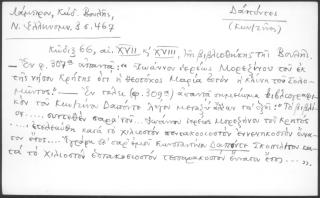 Λάμπρου, Κώδ. Βουλῆς, Δαπόντες
Ν. Ἑλληνομν. 3 σ. 467 (Κων/τῖνος)
Κῶδιξ 66, αἰ. XVII κ' XVIII, τῆς βιβλιοθήκης τῆς Βουλῆς.
— Ἐν φ. 307α ἀπαντᾷ: "Ἰωάννου ἱερέως Μορεζήνου τοῦ ἐκ
τῆς νήσου Κρήτης ὅτι ἡ Θεοτόκος Μαρία ἐστὶν ἡ κλίνη τοῦ Σολο-
μῶντος". — Ἐν τέλει (φ. 309α) ἀπαντᾷ σημείωμα βιβλιογραφι-
κὸν τοῦ Κων/τίνου Δαπόντε λέγον μεταξὺ ἄλλων τὰ ἑξῆς: "Τὸ βιβλί-
ον .... συντεθὲν παρὰ τοῦ... Ἰωάννου ἱερέως Μορεζήνου τοῦ Κρητὸς
.... ἐτελειώθη κατὰ τὸ χιλιοστὸν πεντακοσιοστὸν ἐννενηκοστὸν ἔννα-
τον ἔτος... Ἐγράφη δὲ παρ' ἐμοῦ Κωνσταντίνου Δαπόντε Σκοπελίτου κα-
τὰ τὸ χιλιοστὸν ἑπτακοσιοστὸν τεσσαρακοστὸν ἔννατον ἔτος....".